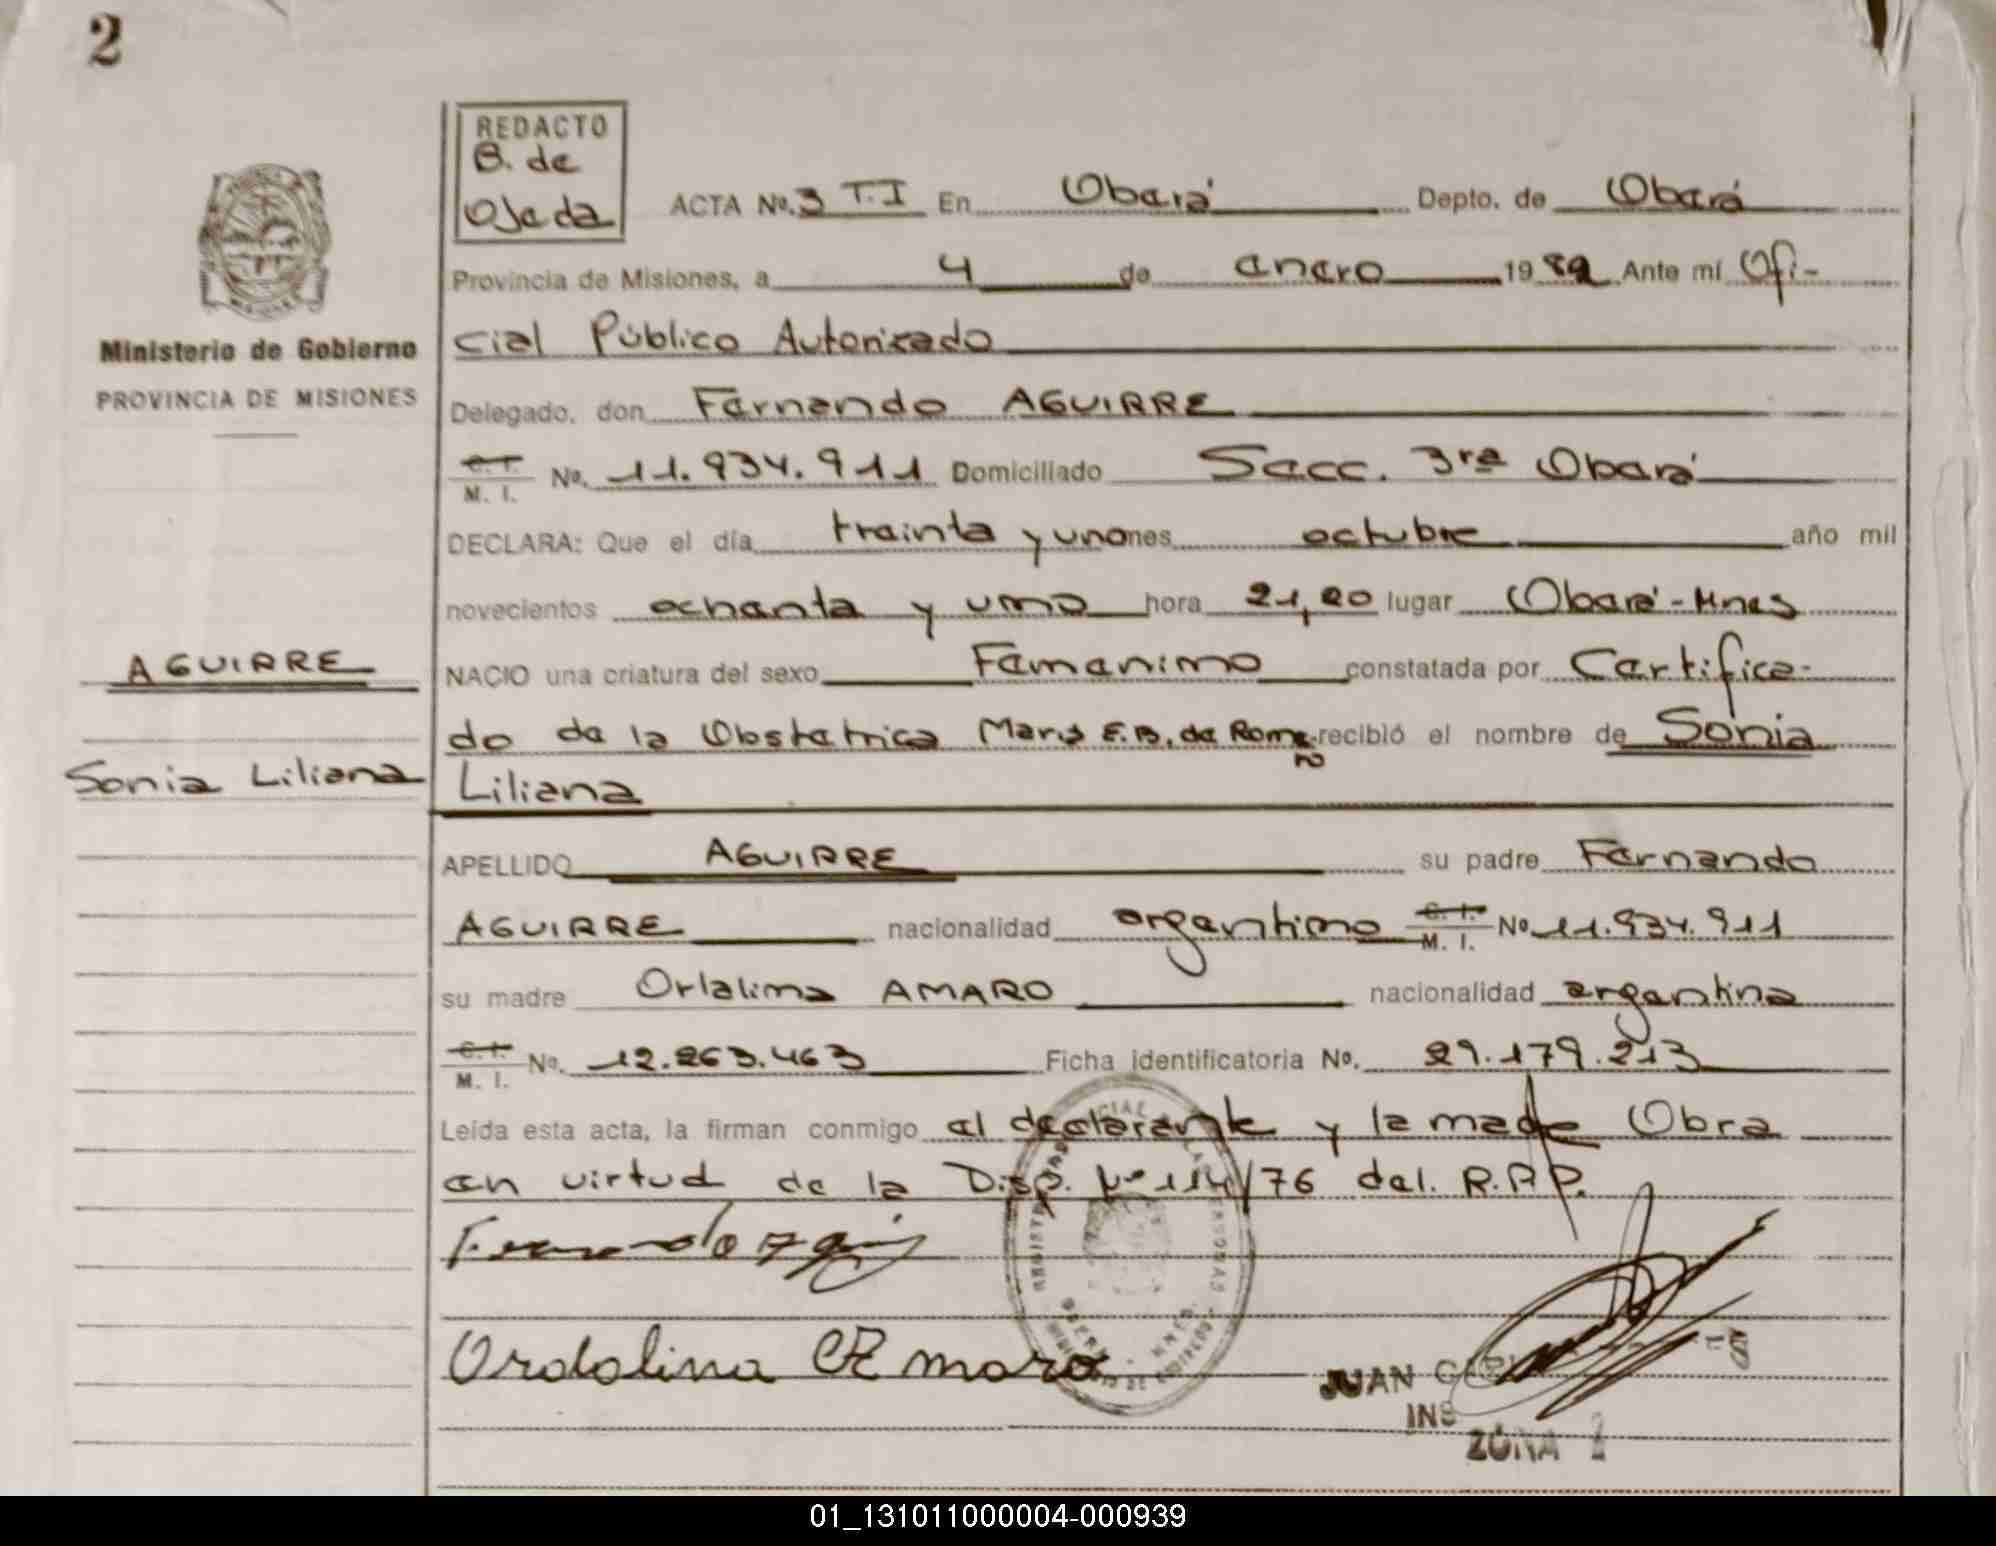 2
REDACTO
B. de
Ojeda
ACTA No. 3 T.I En Oberá Depto. de Oberá
Provincia de Misiones, a 4 de enero 1982 Ante mí Ofi-
Ministerio de Gobierno
cial Público Autorizado
PROVINCIA DE MISIONES
Delegado, don Fernando AGUIRRE
C. I.
M. I. No. 11.934.911 Domiciliado Secc. 3ra Oberá
DECLARA: Que el día treinta y uno mes octubre año mil
novecientos ochenta y uno hora 21,20 lugar Oberá-Mnes
AGUIRRE
NACIO una criatura del sexo Femenino constatada por Certifica-
do de la Obstetrica Maris E.B. de Rome- recibió el nombre de Sonia
ro
Sonia Liliana
Liliana
APELLIDO AGUIRRE su padre Fernando
AGUIRRE nacionalidad argentino C. I.
M. I. No 11.934.911
su madre Orlalina AMARO nacionalidad argentina
C. I.
M. I. No. 12.263.463 Ficha identificatoria No. 29.179.213
Leída esta acta, la firman conmigo el declarante y la madre Obra
en virtud de la Disp. Nº 114/76 del. R.P.P.
Ordolina Amaro
JUAN
INS
ZONA
01_131011000004-000939